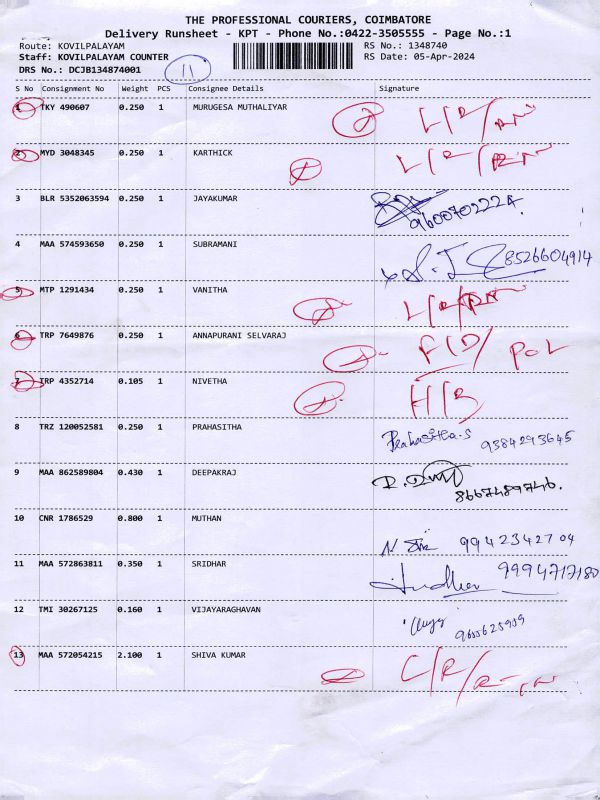 THE PROFESSIONAL COURIERS, COIMBATORE
Delivery Runsheet - KPT - Phone No.:0422-3505555 - Page No.:1
Route: KOVILPALAYAM RS No.: 1348740
Staff: KOVILPALAYAM COUNTER RS Date: 05-Apr-2024
DRS No.: DCJB134874001 11
S No Consignment No Weight PCS Consignee Details Signature
1 TKY 490607 0.250 1 MURUGESA MUTHALIYAR
2 MYD 3048345 0.250 1 KARTHICK
3 BLR 5352063594 0.250 1 JAYAKUMAR
960070222A.
4 MAA 574593650 0.250 1 SUBRAMANI
8526604914
5 MTP 1291434 0.250 1 VANITHA
6 TRP 7649876 0.250 1 ANNAPURANI SELVARAJ
7 TRP 4352714 0.105 1 NIVETHA H/B
8 TRZ 120052581 0.250 1 PRAHASITHA
Prahasitha.S 9384293645
9 MAA 862589804 0.430 1 DEEPAKRAJ
8667489746.
10 CNR 1786529 0.800 1 MUTHAN
9942342704
11 MAA 572863811 0.350 1 SRIDHAR
9994717180
12 TMI 30267125 0.160 1 VIJAYARAGHAVAN
9655625959
13 MAA 572054215 2.100 1 SHIVA KUMAR